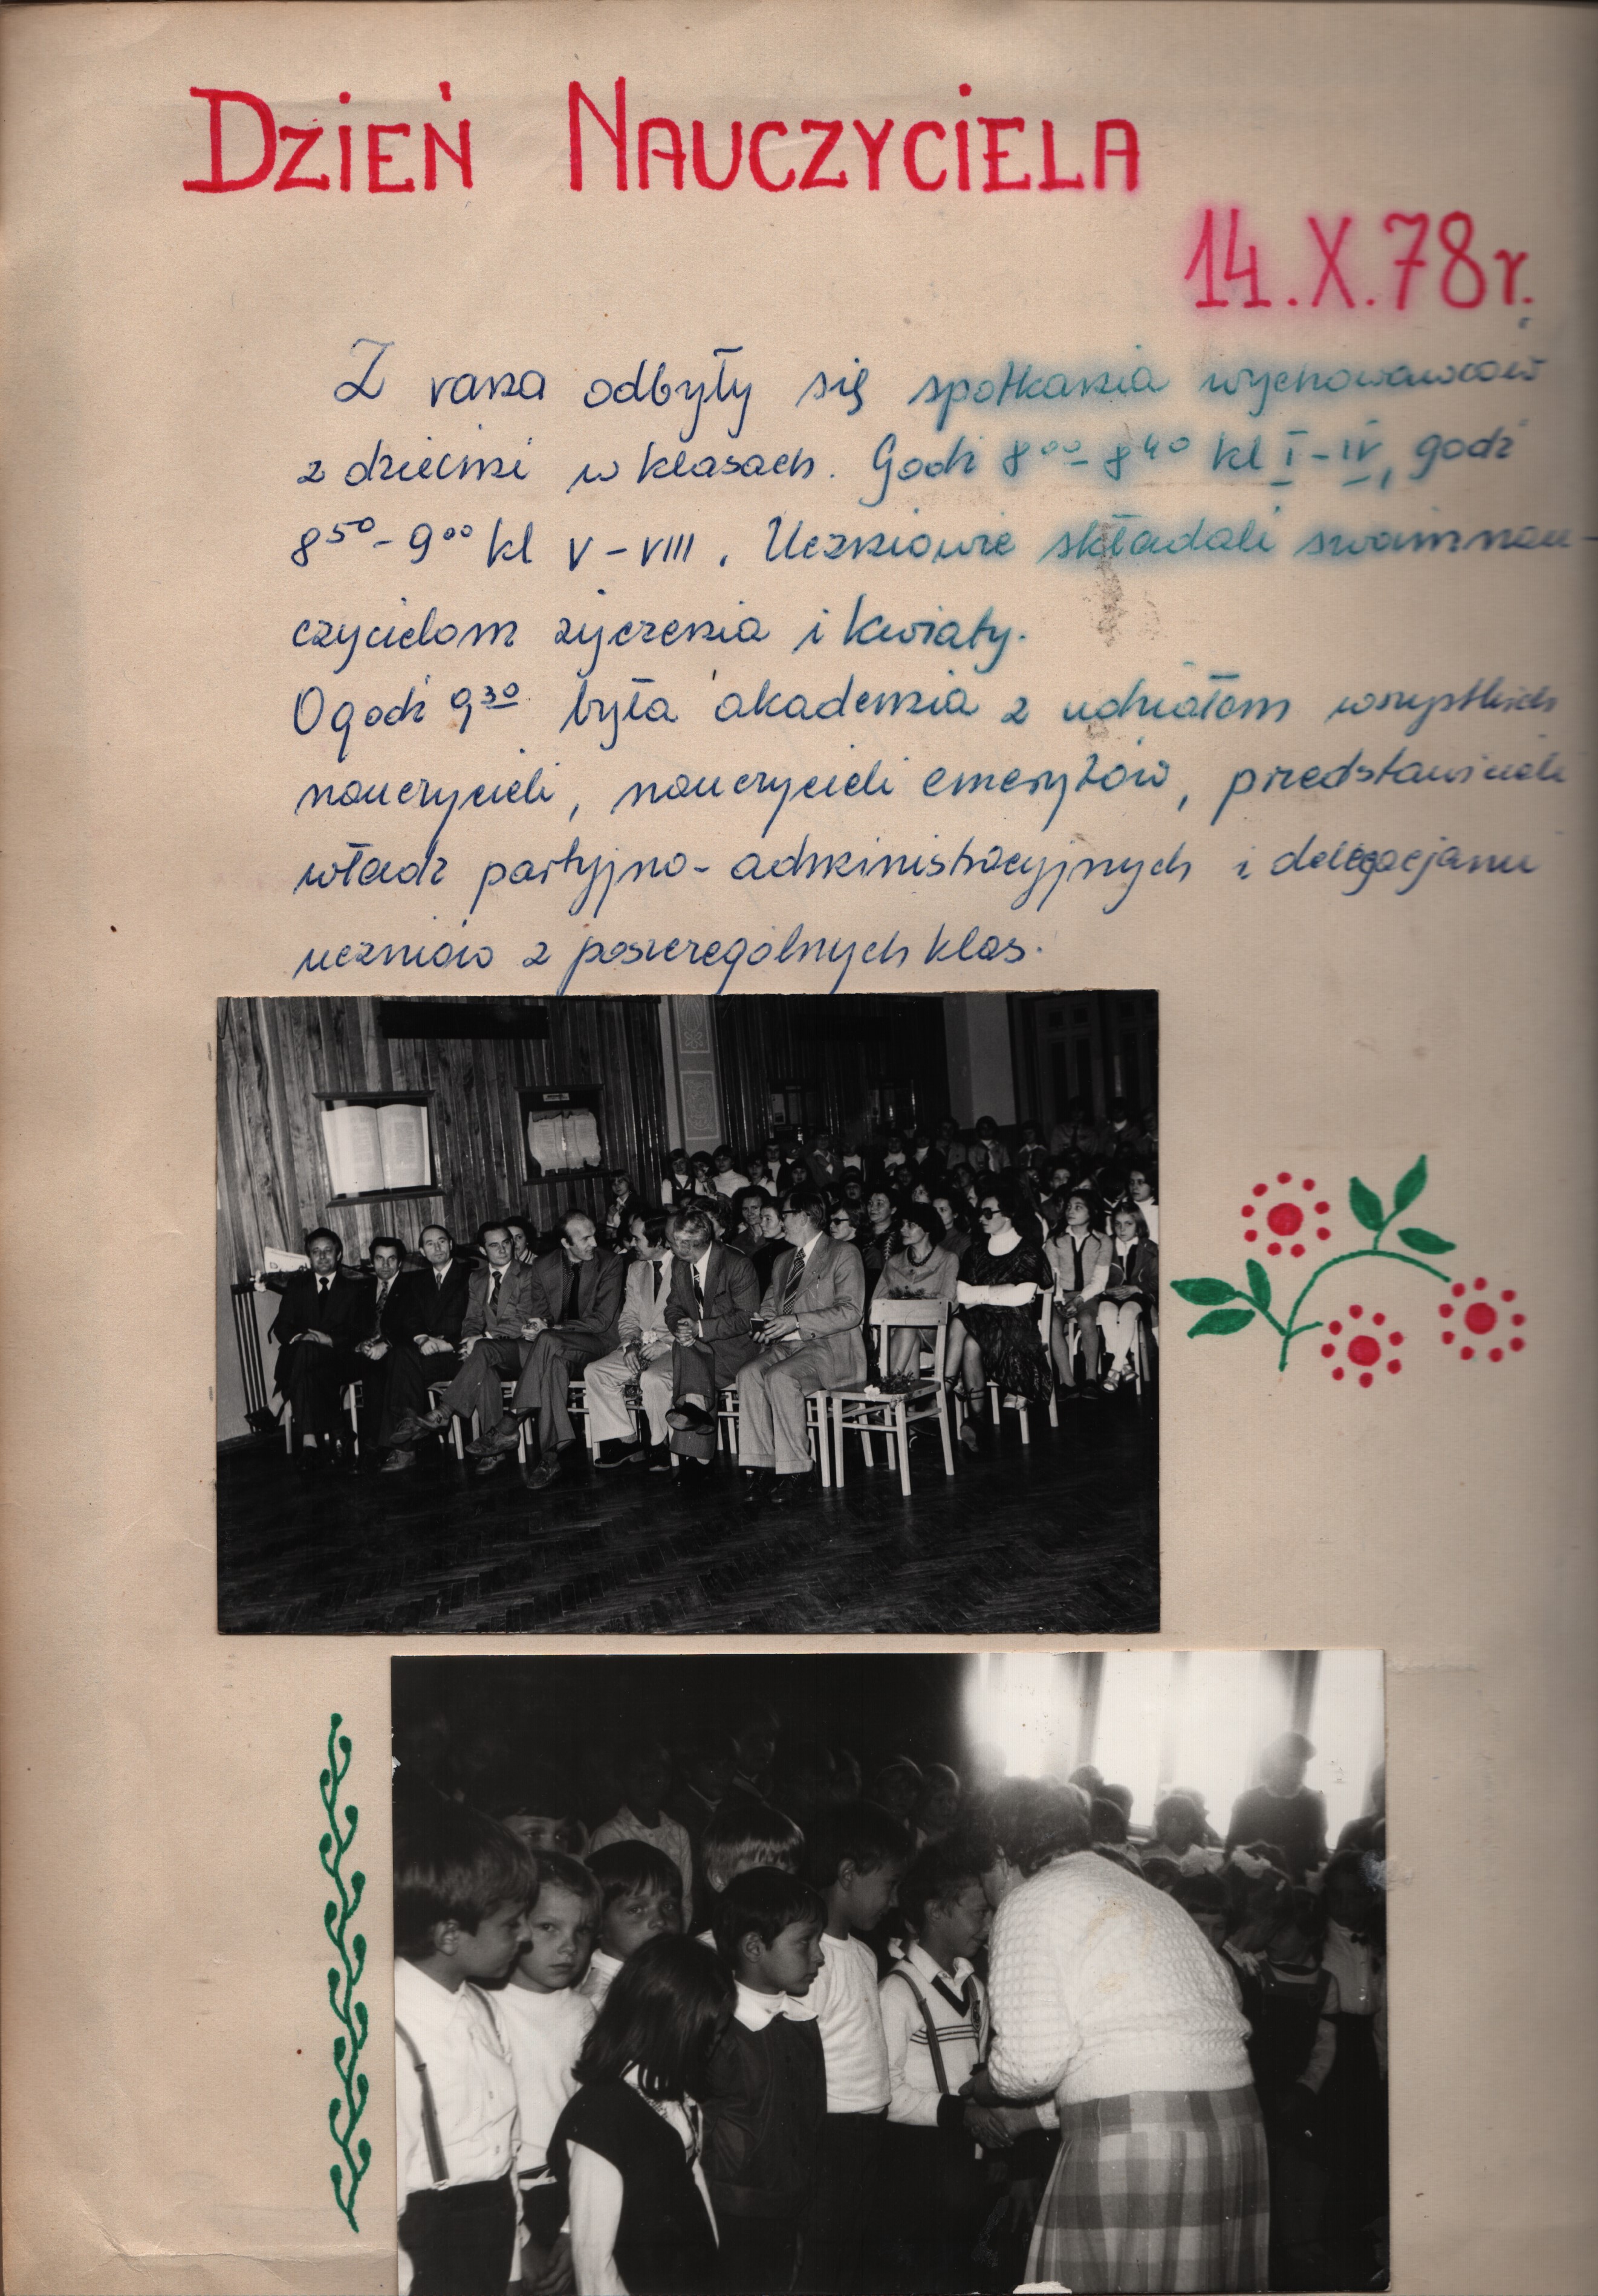 DZIEŃ NAUCZYCIELA
14.X.78r.
Z rana odbyły się spotkania wychowawców
z dziećmi w klasach. Godz 8⁰⁰-8⁴⁰ kl I-IV, godz
8⁵⁰-9⁰⁰ kl V-VIII. Uczniowie składali swoim nau-
czycielom życzenia i kwiaty.
O godz 9³⁰ była akademia z udziałem wszystkich
nauczycieli, nauczycieli emerytów, przedstawicieli
władz partyjno-administracyjnych i delegacjami
uczniów z poszczególnych klas.